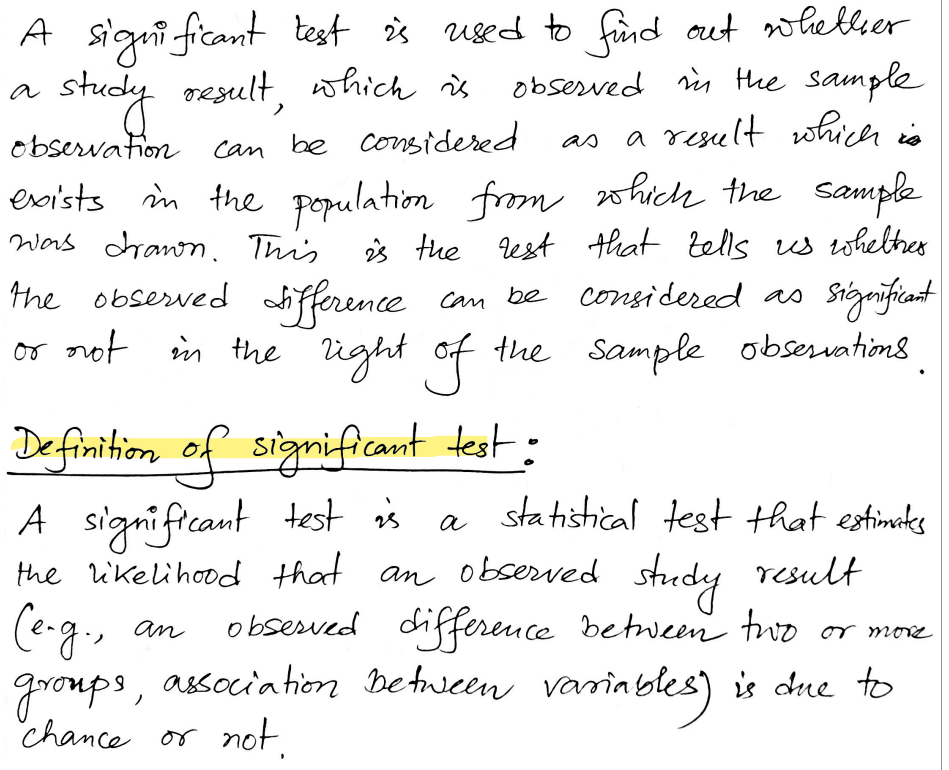 A significant test is used to find out whether
a study result, which is observed in the sample
observation can be considered as a result which is
exists in the population from which the sample
was drawn. This is the test that tells us whether
the observed difference can be considered as significant
or not in the light of the sample observations.
Definition of significant test:
A significant test is a statistical test that estimates
the likelihood that an observed study result
(e.g., an observed difference between two or more
groups, association between variables) is due to
chance or not.